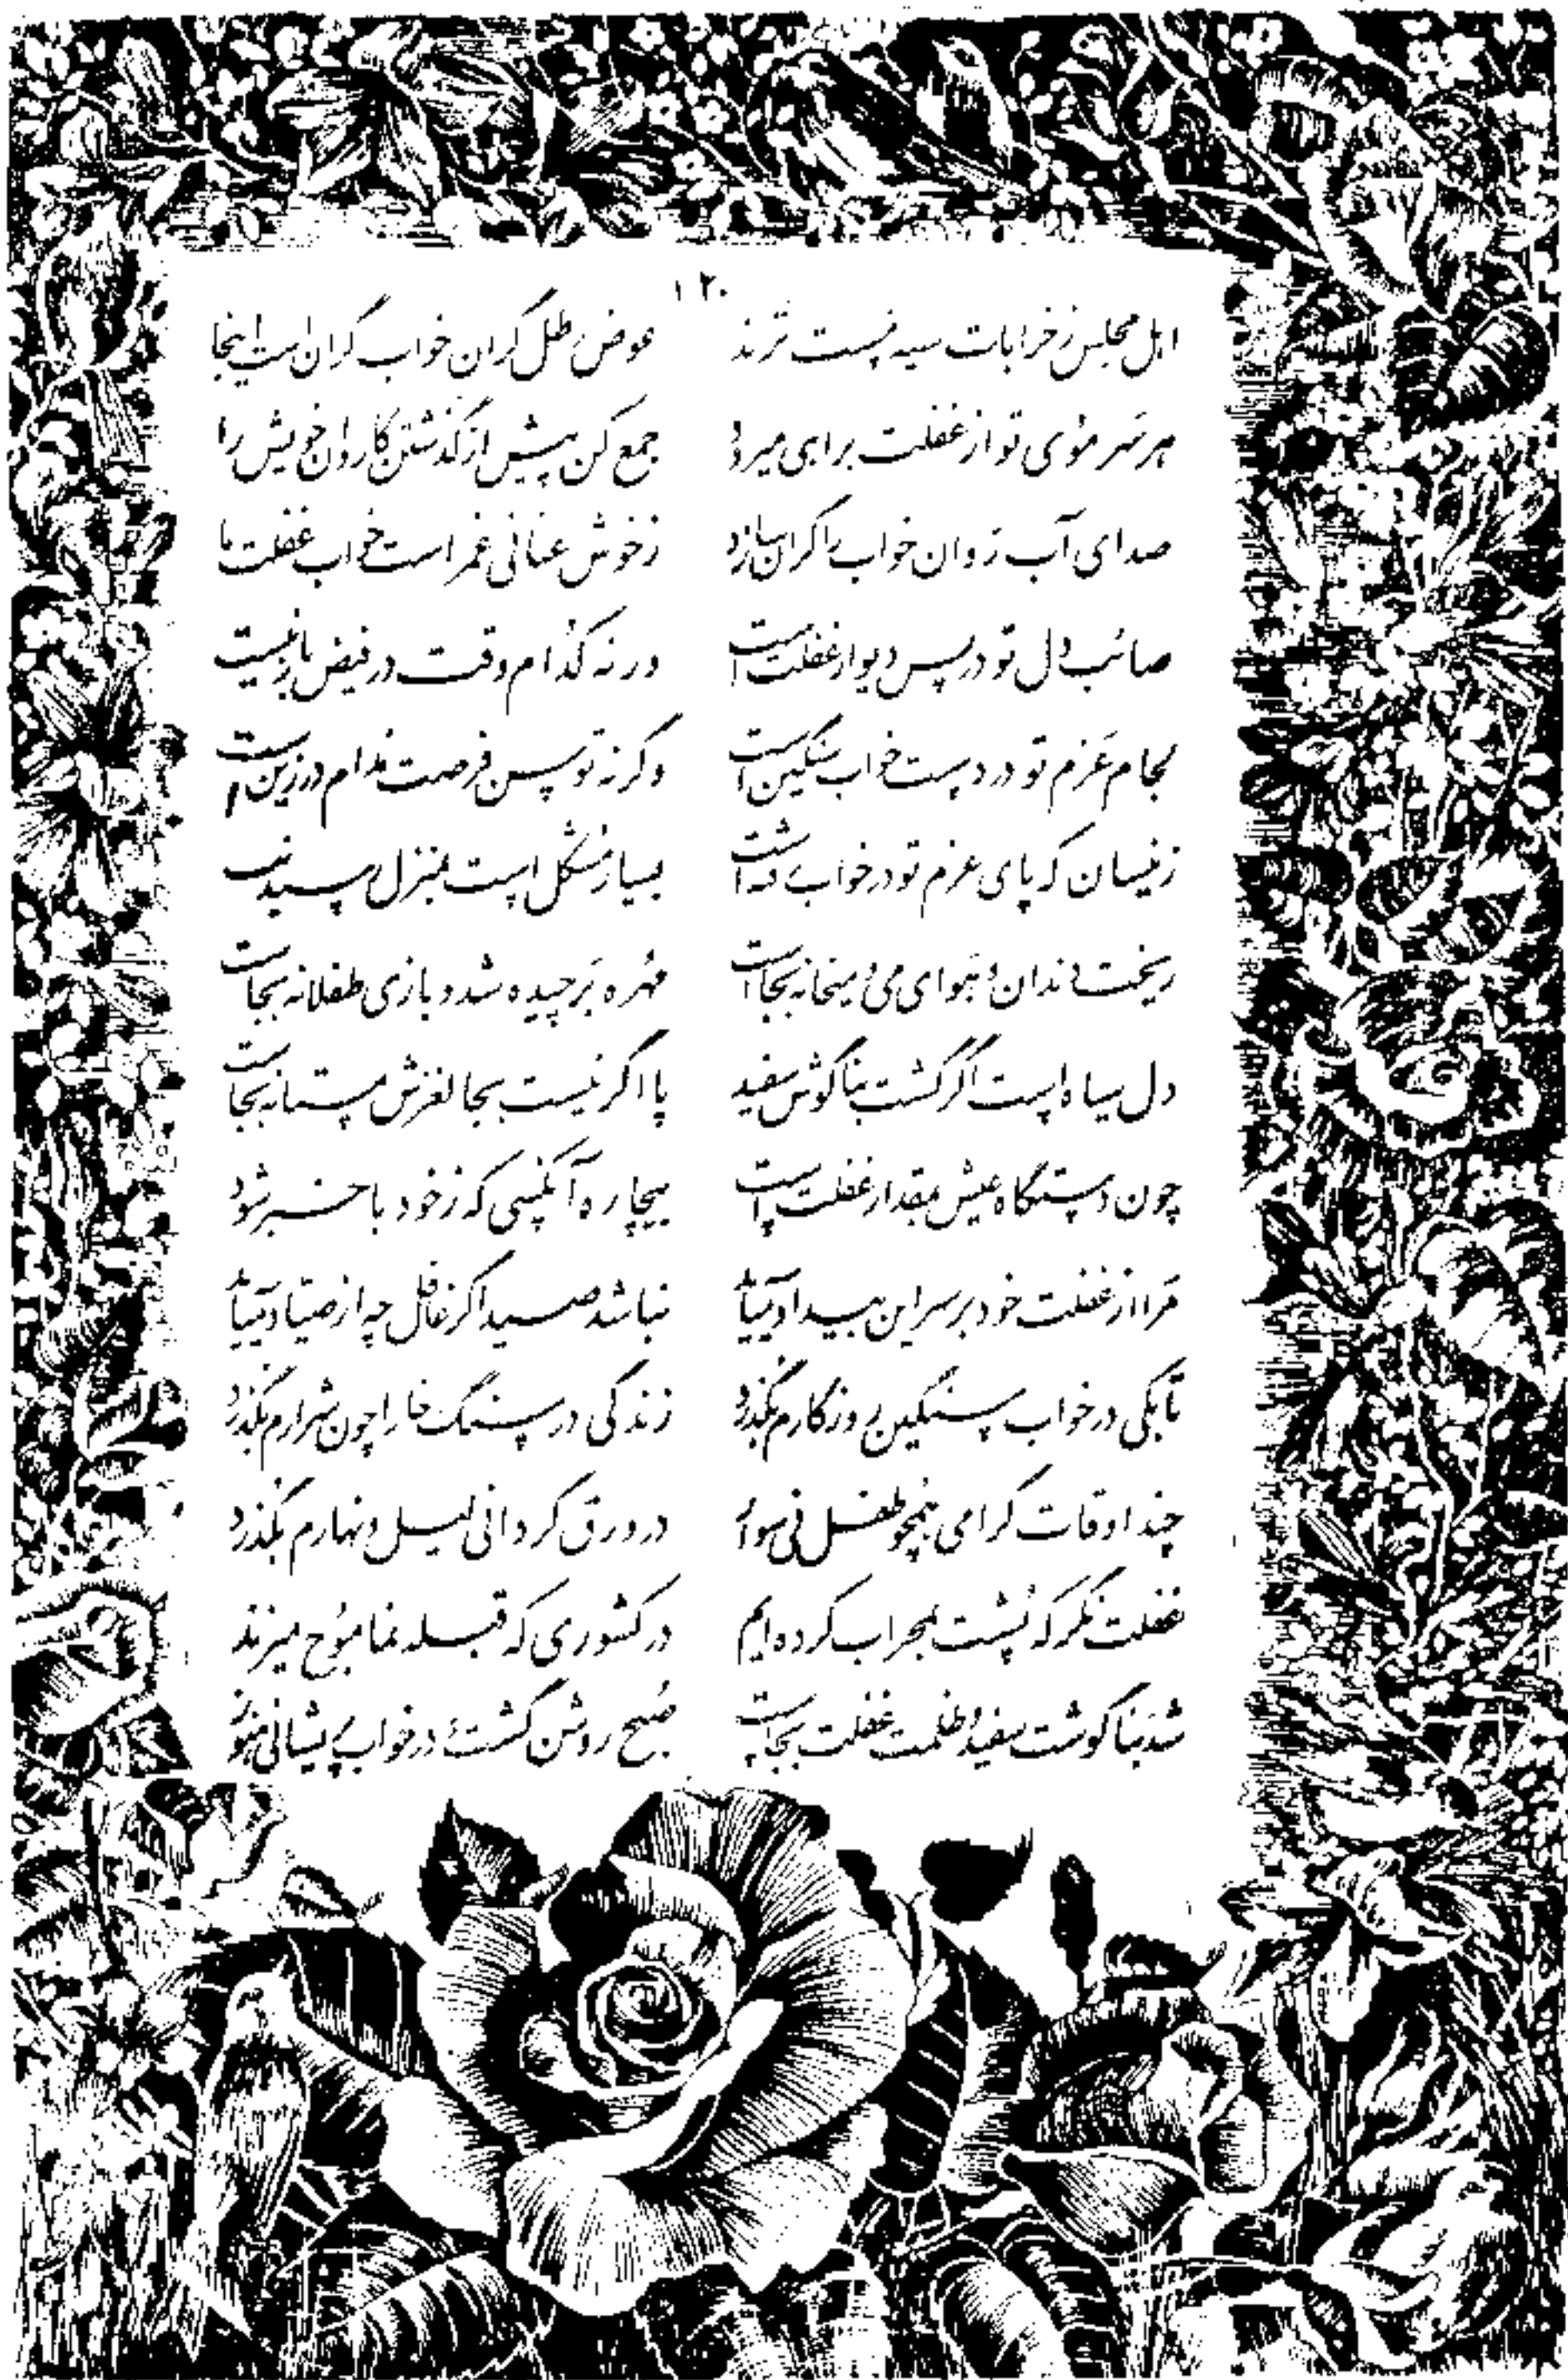 ۱۲۰
اهل مجلس ز خرابات سیه مست ترند عوض رطل گران خواب گران است اینجا
هر سر موی تو از غفلت براهی میرود جمع کن پیش از گذشتن کاروان خویش را
صدای آب روان خواب را گران سازد ز خوش عنانی عمر است خواب غفلت ما
صائب دل تو در پس دیوار غفلت است ورنه کدام وقت در فیض باز نیست
لجام عزم تو در دست خواب سنگین است وگرنه توسن فرصت مدام در زین است
زینسان که پای عزم تو در خواب رفته است بسیار مشکل است بمنزل رسیدنت
ریخت دندان و هوای می و میخانه بجاست مهره برچیده شد و بازی طفلانه بجاست
دل سیاه است اگر گشت بناگوش سفید پا اگر نیست بجا لغزش مستانه بجاست
چون دستگاه عیش بمقدار غفلت است بیچاره آنکسی که ز خود باخبر شود
مرا از غفلت خود بر سر این بیداد میآید نباشد صید اگر غافل چه از صیاد میآید
تا بکی در خواب سنگین روزگارم بگذرد زندگی در سنگ خارا چون شرارم بگذرد
چند اوقات گرامی همچو طفل نی سوار در ورق گردانی لیل و نهارم بگذرد
غفلت نگر که پشت بمحراب کرده ایم در کشوری که قبله نما موج میزند
شد بناگوشت سفید و ظلمت غفلت بجاست صبح روشن گشت و در خواب پریشانی هنوز